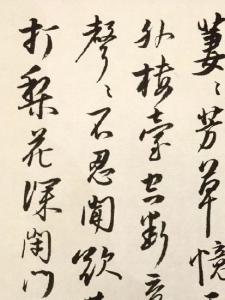 萋々芳草憶
外樓高空斷
聲々不忍聞欲
打梨花深閉門